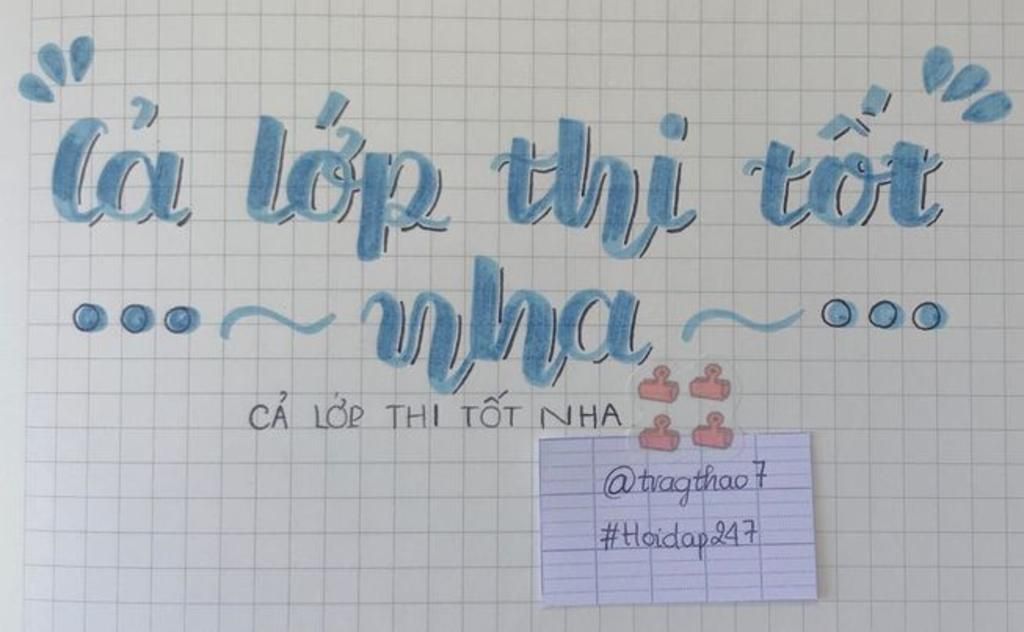 Cả lớp thi tốt
nha
CẢ LỚP THI TỐT NHA
@tragthao7
#Hoidap247